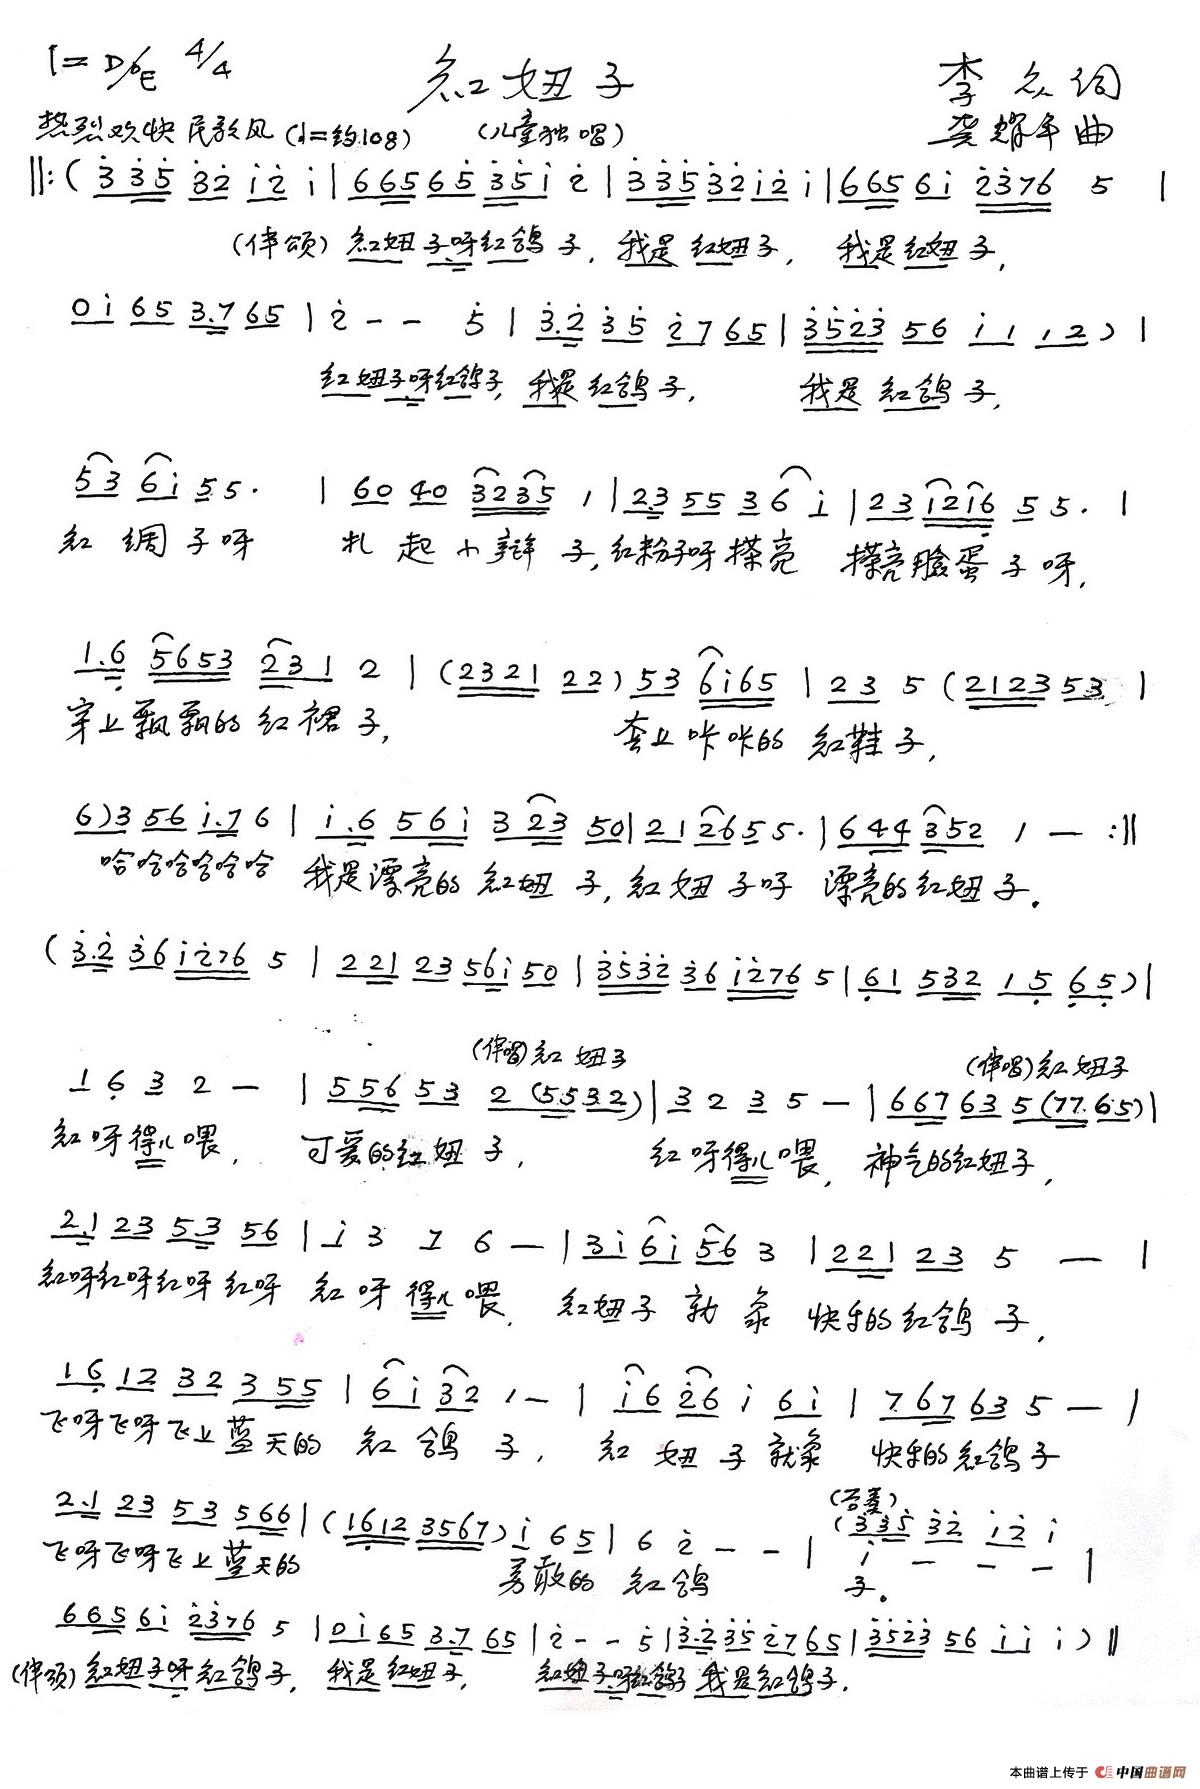 1=D/bE 4/4
红妞子
李众词
热烈欢快 民歌风 (♩=约108)
(儿童独唱)
龚耀年曲
‖:( 3̇ 3̇5̇ 3̇2̇ i2̇ i | 6 65 65 3̇5̇i 2̇ | 3̇ 3̇5̇ 3̇2̇ i2̇ i | 665 6i 2̇3̇76 5 |
(伴颂) 红妞子呀红鸽子, 我是红妞子, 我是红妞子,
0i 65 3.7 65 | 2̇ - - 5̇ | 3̇.2̇ 3̇5̇ 2̇7 65 | 3̇5̇2̇3̇ 56 i1 12 ) |
红妞子呀红鸽子, 我是红鸽子, 我是红鸽子,
53 6i 55. | 60 40 3235 1 | 2.3 55 3 6 i | 23 1216 55. |
红绸子呀 扎起小辫子, 红粉子呀搽亮 搽亮脸蛋子呀,
1.6 5653 231 2 | (2321 22) 53 6i65 | 23 5 (2123 53 |
穿上飘飘的红裙子, 套上咔咔的红鞋子,
6)3 56 i.7 6 | i.6 56i 3 23 50 | 21 265 5. | 644 352 1 — :‖
哈哈哈哈哈哈 我是漂亮的红妞子, 红妞子呀 漂亮的红妞子。
(3̇.2̇ 3̇6 i2̇76 5 | 221 23 56i 50 | 3̇5̇3̇2̇ 3̇6 i2̇76 5 | 61 532 15 65) |
(伴唱)红妞子
(伴唱)红妞子
1 6 3 2 — | 556 53 2 (5532) | 3 2 3 5 — | 667 63 5 (77.65) |
红呀得儿喂, 可爱的红妞子, 红呀得儿喂, 神气的红妞子,
2.1 23 5.3 56 | i 3 7 6 — | 3i 6i 56 3 | 221 23 5 — |
红呀红呀红呀红呀 红呀得儿喂, 红妞子就象 快乐的红鸽子,
16 12 32 355 | 6i 32 1 — | i6 2̇6 i 6i | 767 63 5 — |
飞呀飞呀飞上蓝天的 红鸽子, 红妞子就象 快乐的红鸽子
(合奏)
2.1 23 53 566 | (1612 3567) i 65 | 6 2̇ - - | (3̇3̇5̇ 3̇2̇ i2̇ i
i — — — |
飞呀飞呀飞上蓝天的 勇敢的 红鸽 子。
665 6i 2̇3̇76 5 | 0i65 3.7 65 | 2̇ - - 5̇ | 3̇.2̇ 3̇5̇ 2̇765 | 3̇5̇2̇3̇ 56 ii i) ‖
(伴颂) 红妞子呀红鸽子, 我是红妞子, 红妞子呀红鸽子 我是红鸽子,
本曲谱上传于 中国曲谱网